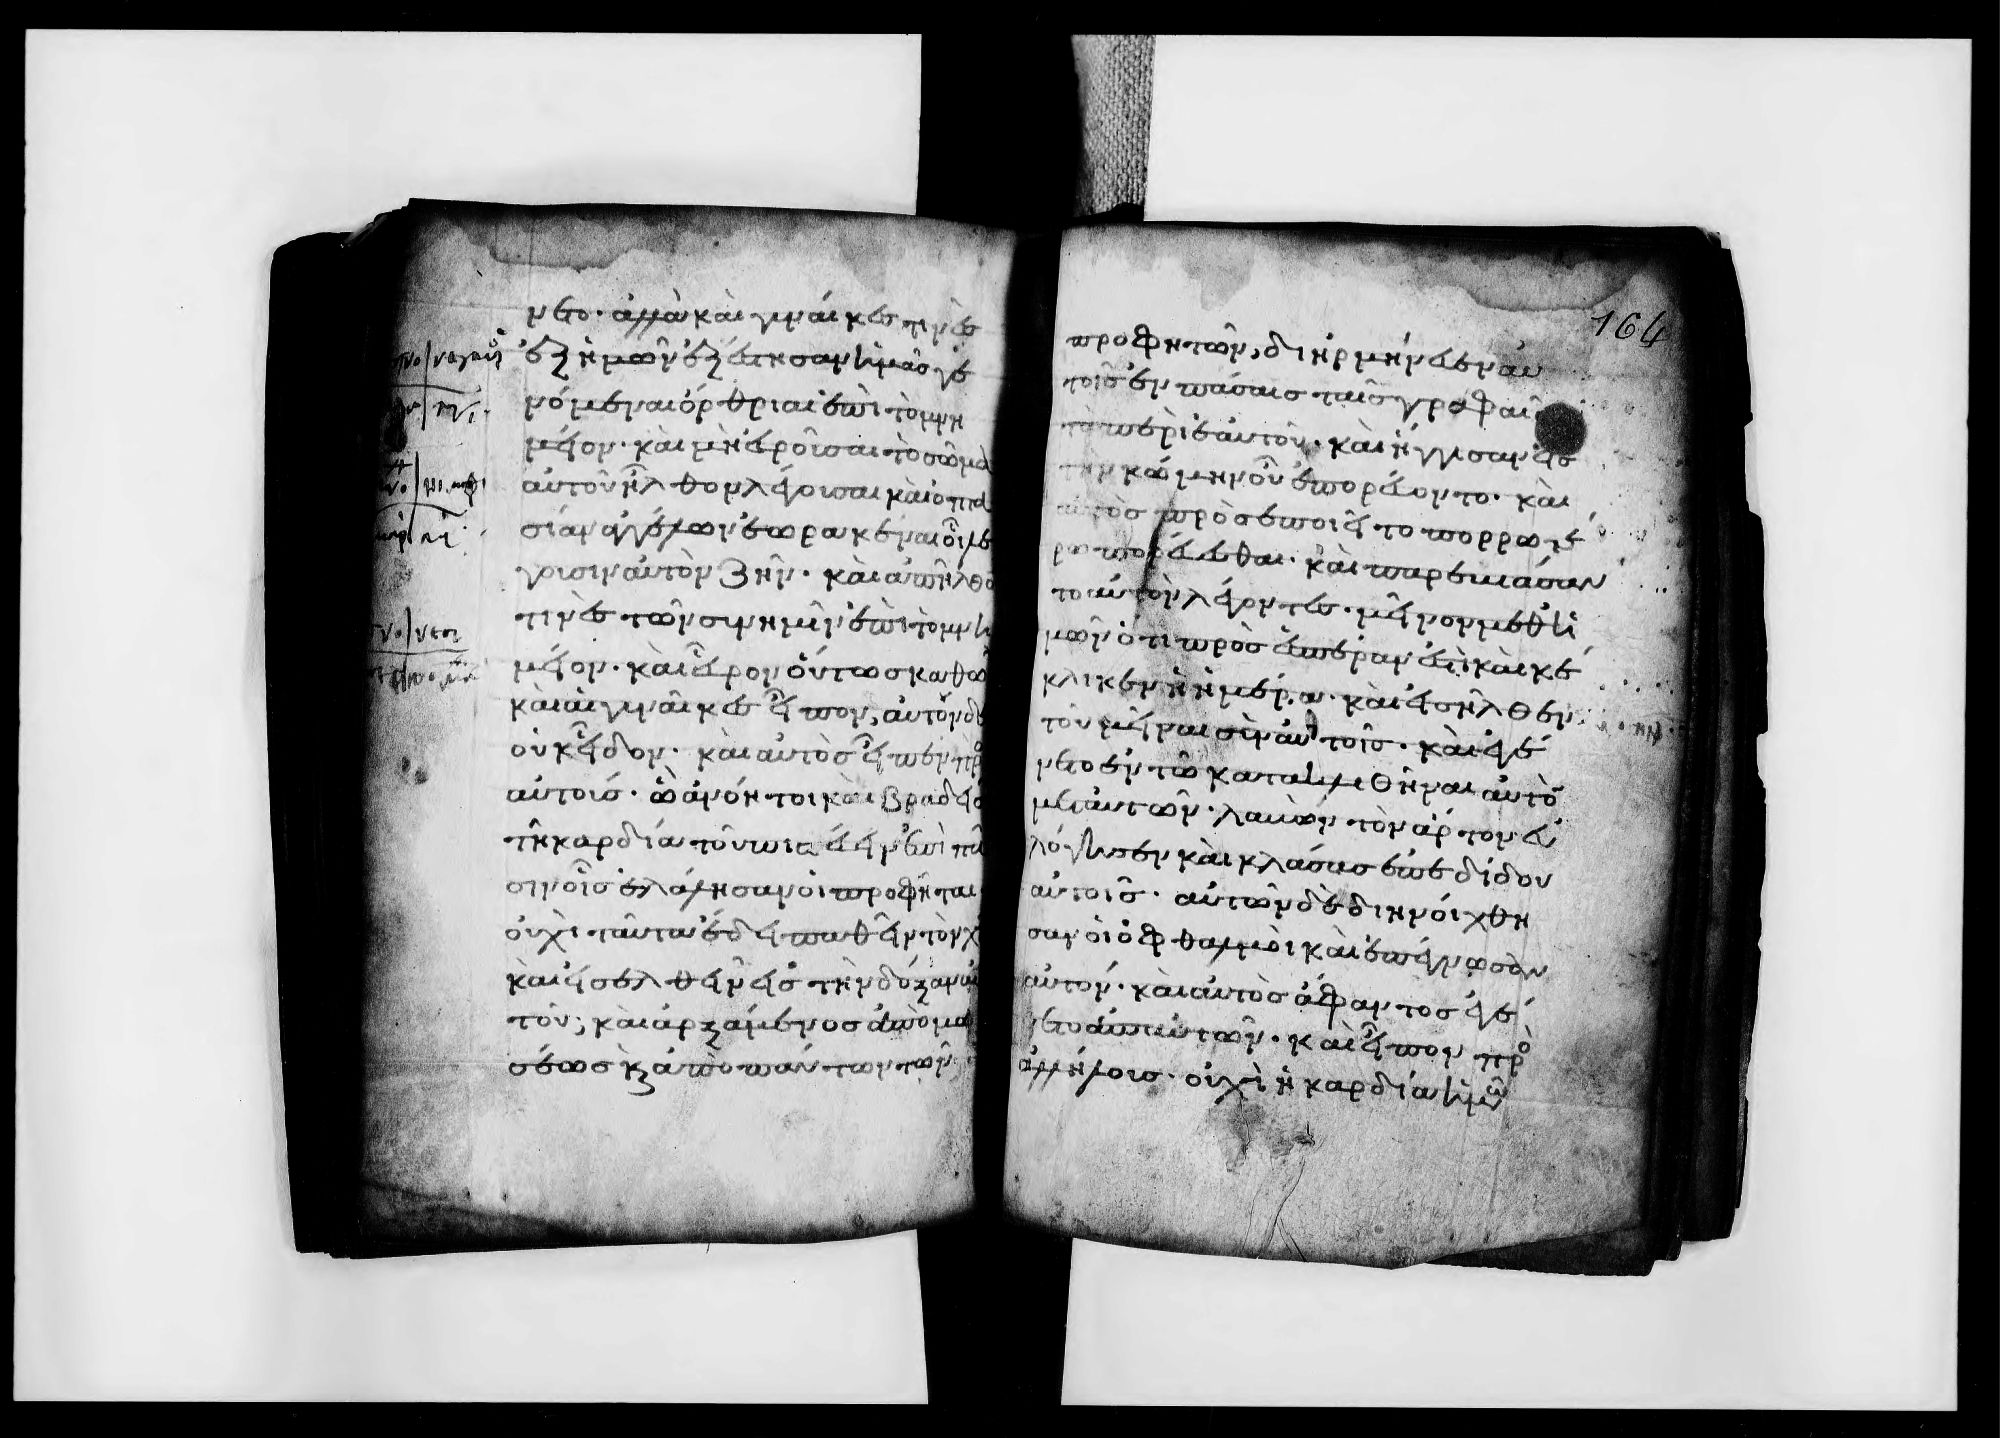 νετο· ἀλλὰ καὶ γυναῖκες τινὲς
ἐξ ἡμῶν ἐξέστησαν ἡμᾶς γε
νόμεναι ὄρθριαι ἐπὶ τὸ μνη
μεῖον· καὶ μὴ εὑροῦσαι τὸ σῶμα
αὐτοῦ ἦλθον λέγουσαι καὶ ὀπτα
σίαν ἀγγέλων ἑωρακέναι οἳ λέ
γουσιν αὐτὸν ζῆν· καὶ ἀπῆλθό
τινὲς τῶν σὺν ἡμῖν ἐπὶ τὸ μνη
μεῖον· καὶ εὗρον οὕτως καθὼς
καὶ αἱ γυναῖκες εἶπον, αὐτὸν δὲ
οὐκ εἶδον· καὶ αὐτὸς εἶπεν πρὸ
αὐτούς· ὦ ἀνόητοι καὶ βραδεῖς
τῇ καρδία τοῦ πιστεύειν ἐπὶ πᾶ
σιν οἷς ἐλάλησαν οἱ προφῆται
οὐχὶ ταῦτα ἔδει παθεῖν τὸν χν
καὶ εἰσελθεῖν εἰς τὴν δόξαν αὐ
τοῦ; καὶ ἀρξάμενος ἀπὸ μω
σέως κ ἀπὸ πάντων τῶν
164
προφητῶν, διηρμήνευεν αὐ
τοῖς ἐν πάσαις ταῖς γραφαῖς
τὰ περὶ ἑαυτοῦ· καὶ ἤγγισαν εἰς
τὴν κώμην οὗ ἐπορεύοντο· καὶ
αὐτὸς προσεποιεῖτο πορρωτέ
ρω πορεύεσθαι· καὶ παρεβιάσαν
το αὐτὸν λέγοντες· μεῖνον μεθ ἡ
μῶν ὅτι πρὸς ἑσπέραν ἐστὶ καὶ κέ
κλικεν ἡ ἡμέρα· καὶ εἰσῆλθεν
τοῦ μεῖναι σὺν αὐτοῖς· καὶ ἐγέ
νετο ἐν τῶ κατακλιθῆναι αὐτὸ
μετ αὐτῶν· λαβὼν τὸν ἄρτον εὐ
λόγησεν καὶ κλάσας ἐπεδίδου
αὐτοῖς· αὐτῶν δὲ διηνοίχθη
σαν οἱ ὀφθαλμοὶ καὶ ἐπέγνωσαν
αὐτόν· καὶ αὐτὸς ἄφαντος ἐγέ
νετο ἀπ αὐτῶν· καὶ εἶπον πρὸ
ἀλλήλους· οὐχὶ ἡ καρδία ἡμῶν